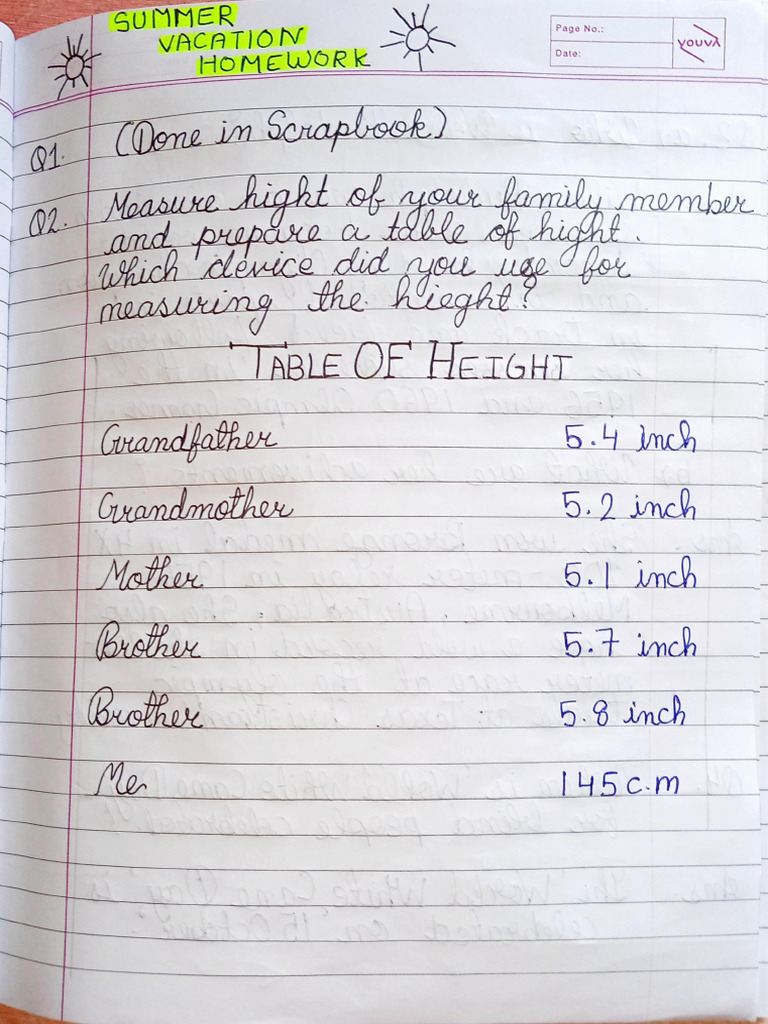 SUMMER
VACATION
HOMEWORK
Page No.:
Date:
youva
Q1. (Done in Scrapbook)
Q2. Measure hight of your family member
and prepare a table of hight.
Which device did you use for
measuring the hieght?
TABLE OF HEIGHT
Grandfather 5.4 inch
Grandmother 5.2 inch
Mother 5.1 inch
Brother 5.7 inch
Brother 5.8 inch
Me 145 c.m